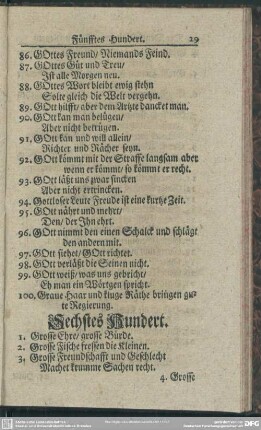 Fünfftes Hundert. 29
86. GOttes Freund/ Niemands Feind.
87. GOttes Güt und Treu/
Ist alle Morgen neu.
88. GOttes Wort bleibt ewig stehn
Solte gleich die Welt vergehn.
89. GOtt hilfft/ aber dem Artzte dancket man.
90. GOtt kan man belügen/
Aber nicht betrügen.
91. GOtt kan und will allein/
Richter und Rächer seyn.
92. GOtt kömmt mit der Straffe langsam aber
wenn er kömmt/ so kömmt er recht.
93. GOtt läßt uns zwar sincken
Aber nicht ertrincken.
94. Gottloser Leute Freude ist eine kurtze Zeit.
95. GOtt nährt und mehrt/
Den/ der Ihn ehrt.
96. GOtt nimmt den einen Schalck und schlägt
den andern mit.
97. GOtt siehet/ GOtt richtet.
98. GOtt verläßt die Seinen nicht.
99. GOtt weiß/ was uns gebricht/
Eh man ein Wörtgen spricht.
100. Graue Haar und kluge Räthe bringen gu-
te Regierung.
Sechstes Hundert.
1. Grosse Ehre/ grosse Bürde.
2. Grosse Fische fressen die Kleinen.
3. Grosse Freundschafft und Geschlecht
Machet krumme Sachen recht.
4. Grosse